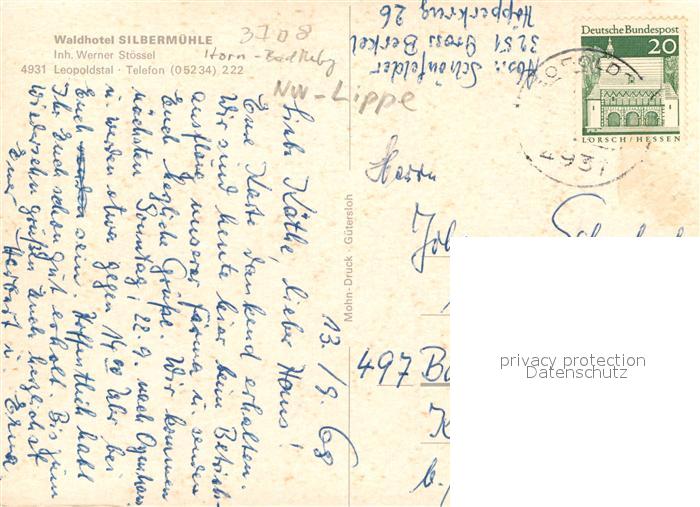 Waldhotel SILBERMÜHLE
Inh. Werner Stössel
4931 Leopoldstal · Telefon (05234) 222
3708
Horn-Bad
NW-Lippe
Abs.: Schönfelder
3251 Gross Berkel
Höpperkrug 26
Deutsche Bundespost
20
LORSCH/HESSEN
4931
13./9. 68
Liebe Käthe, lieber Hans!
Eure Karte dankend erhalten.
Wir sind heute hier beim Betriebs-
ausflug unserer Firma u. senden
Euch herzliche Grüße. Wir kommen
nächsten Sonntag, 22.9. nach
u. werden etwa gegen 14 00 Uhr bei
Euch sein. Hoffentlich habt
Ihr Euch schon gut erholt. Bis zum
Wiedersehn grüßen Euch herzlichst
Eure Herbert u. Erna
Mohn-Druck · Gütersloh
Herrn
497 Ba
privacy protection
Datenschutz